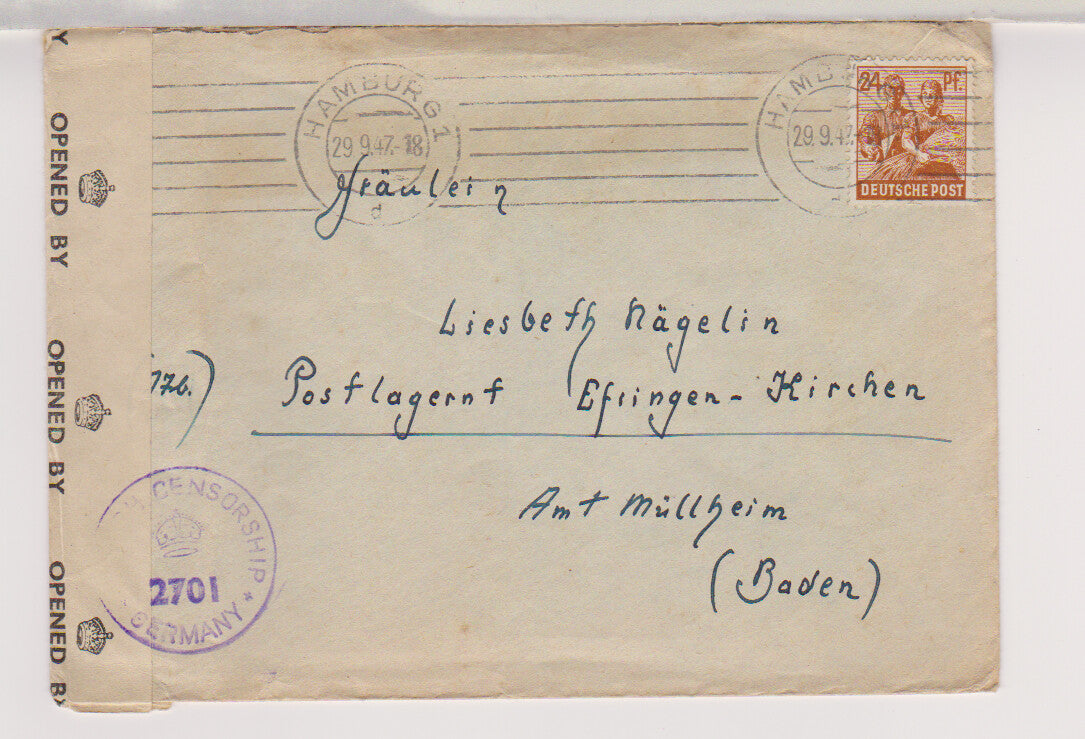 HAMBURG 1
29.9.47.-18
d
HAMB
29.9.47.-
24 Pf.
DEUTSCHE POST
Fräulein
Liesbeth Nägelin
Postlagernt Efringen-Kirchen
Amt Müllheim
(Baden)
OPENED BY
OPENED BY
OPENED BY
CENSORSHIP
2701
GERMANY *